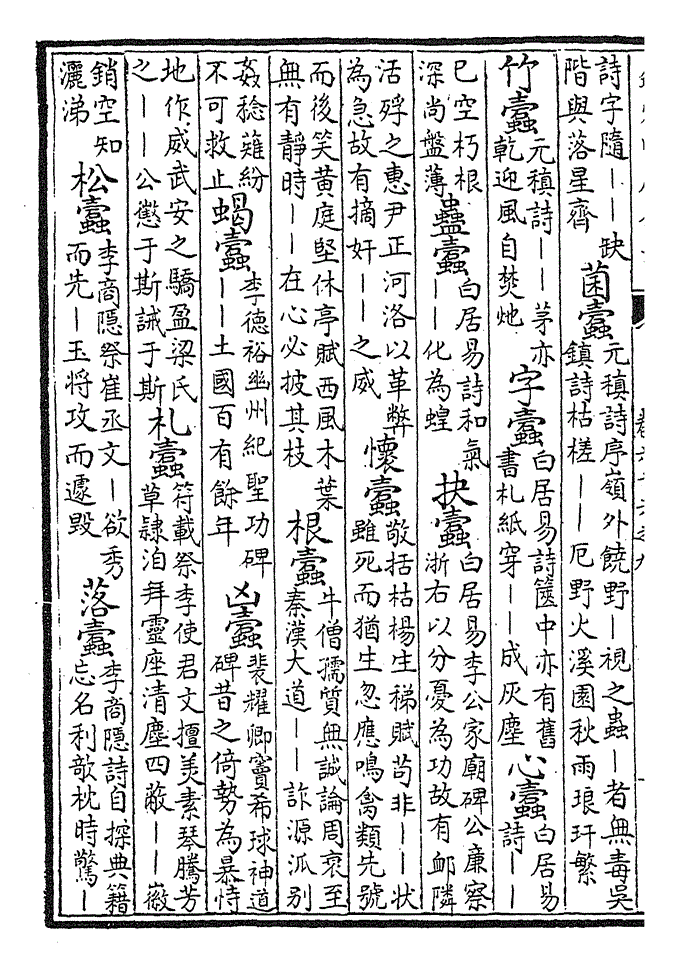 詩字隨——缺
階與落星齊
菌蠹
元稹詩序嶺外饒野—視之蟲—者無毒吳
鎮詩枯槎——厄野火溪園秋雨琅玕繁
竹蠹
元稹詩——茅亦
乾迎風自焚灺
字蠹
白居易詩篋中亦有舊
書札紙穿——成灰塵
心蠹
白居易
詩——
已空朽根
深尚盤薄
蠱蠹
白居易詩和氣
——化為蝗
抉蠹
白居易李公家廟碑公廉察
浙右以分憂為功故有卹隣
活殍之惠尹正河洛以革弊
為急故有摘奸——之威
懷蠹
敬括枯楊生稊賦苟非——狀
雖死而猶生忽應鳴禽類先號
而後笑黃庭堅休亭賦西風木葉
無有靜時——在心必披其枝
根蠹
牛僧孺質無誠論周衰至
秦漢大道——詐源派別
姦稔薙紛
不可救止
蝎蠹
李德裕幽州紀聖功碑
——土國百有餘年
凶蠹
裴耀卿竇希球神道
碑昔之倚勢為暴恃
地作威武安之驕盈梁氏
之——公懲于斯誡于斯
札蠹
符載祭李使君文擅美素琴騰芳
草隷泊拜靈座清塵四蔽——徽
銷空知
灑涕
松蠹
李商隱祭崔丞文—欲秀
而先—玉將攻而遽毀
落蠹
李商隱詩自探典籍
忘名利欹枕時驚—